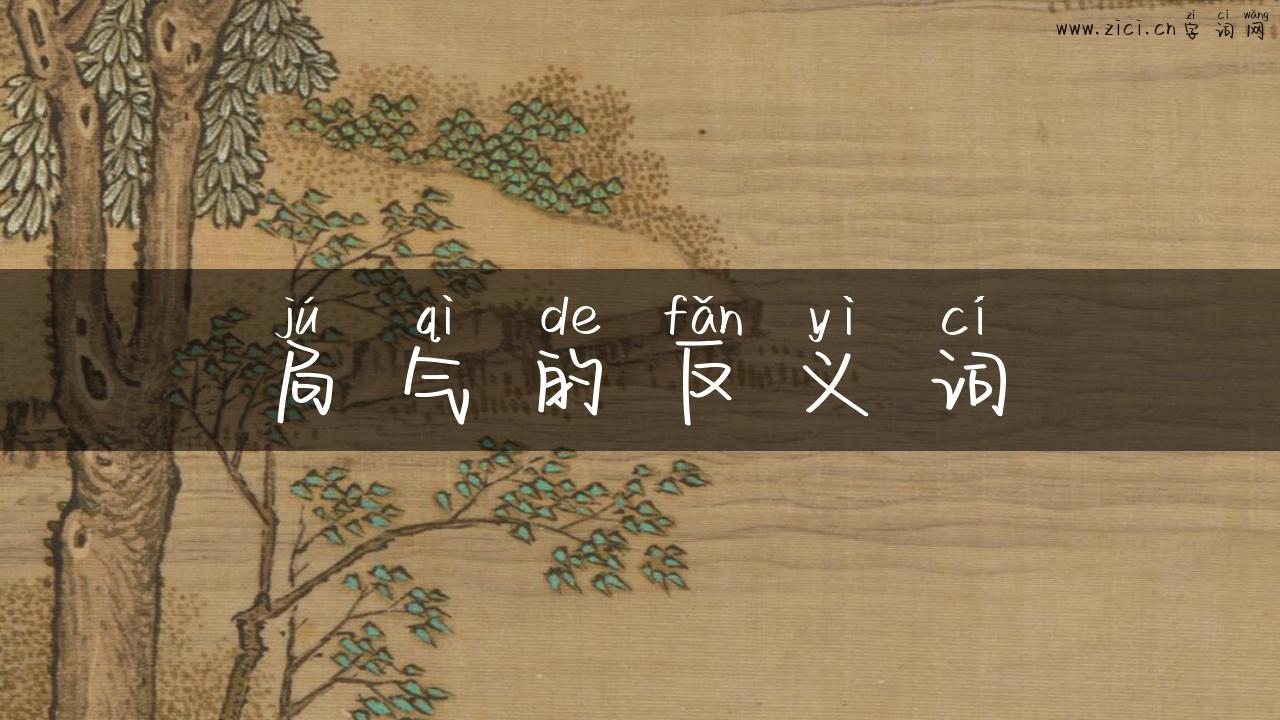 zì cí wǎng
www.zici.cn 字词网
jú qì de fǎn yì cí
局气的反义词